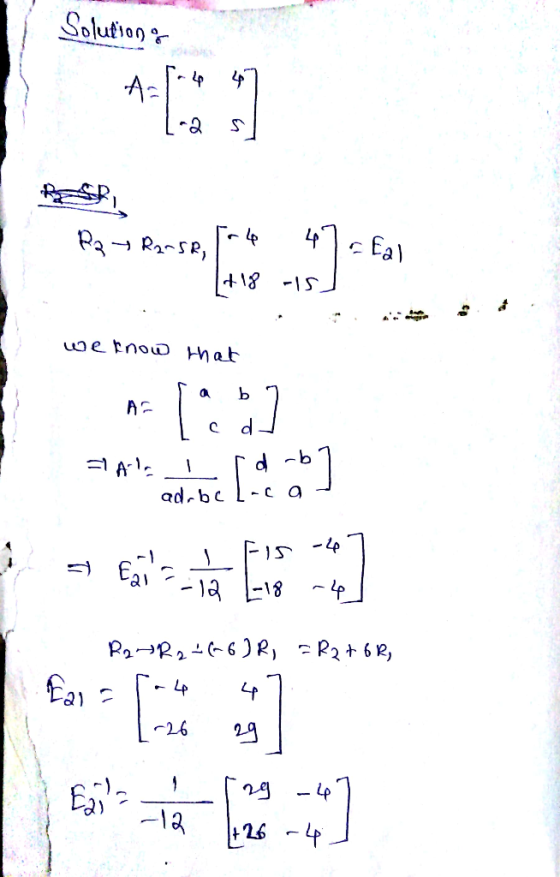 Solution :
A = [ -4 4
-2 5 ]
R2 → R2-5R1 [ -4 4
+18 -15 ] = E21
we know that
A = [ a b
c d ]
⇒ A-1 = 1/ad-bc [ d -b
-c a ]
⇒ E21-1 = 1/-12 [ -15 -4
-18 -4 ]
R2→R2-(-6)R1 = R2+6R1
E21 = [ -4 4
-26 29 ]
E21-1 = 1/-12 [ 29 -4
+26 -4 ]